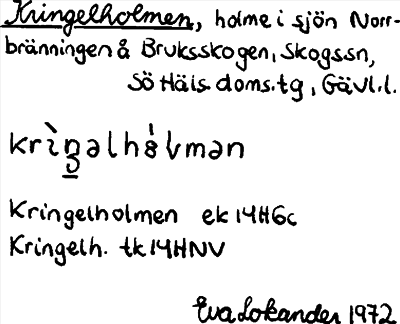 Kringelholmen, holme i sjön Norr-
bränningen å Bruksskogen, Skogssn,
Sö Häls. doms.tg, Gävl.l.
Kringelholmen ek 14H6c
Kringelh. tk 14HNV
Eva Lokander 1972